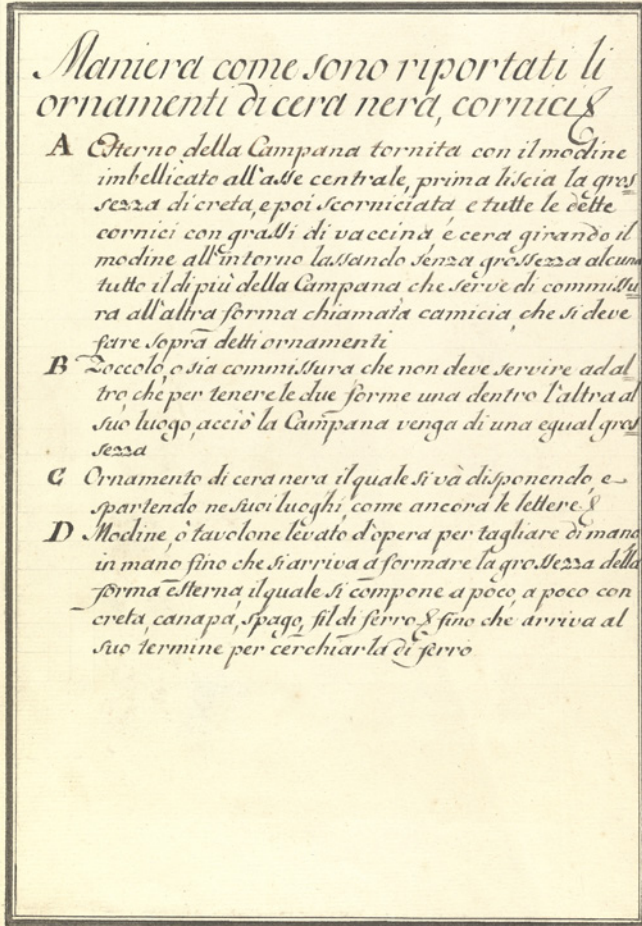 Maniera come sono riportati li
ornamenti di cera nera, cornici &
A Esterno della Campana tornita con il modine
imbellicato all'asse centrale, prima liscia la gros
sezza di creta, e poi scorniciata e tutte le dette
cornici con grassi di vaccina e cera girando il
modine all'intorno lassando senza grossezza alcuna
tutto il di più della Campana che serve di commissu
ra all'altra forma chiamata camicia, che si deve
fare sopra detti ornamenti
B Zoccolo, o sia commissura che non deve servire ad al
tro, che per tenere le due forme una dentro l'altra al
suo luogo, acciò la Campana venga di una egual gros
sezza
C Ornamento di cera nera il quale si và disponendo, e
spartendo ne suoi luoghi, come ancora le lettere &
D Modine, ò tavolone levato d'opera per tagliare di mano
in mano fino che si arriva a formare la grossezza della
forma esterna, il quale si compone a poco, a poco con
creta, canapa, spago, fil di ferro & fino che arriva al
suo termine per cerchiarla di ferro